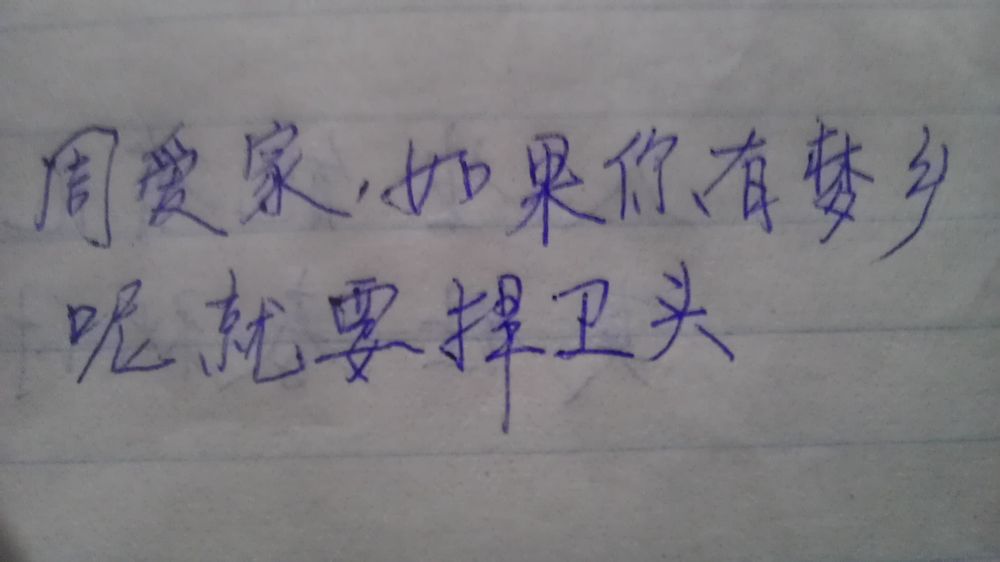 周爱家，如果你有梦乡
呢就要捍卫头